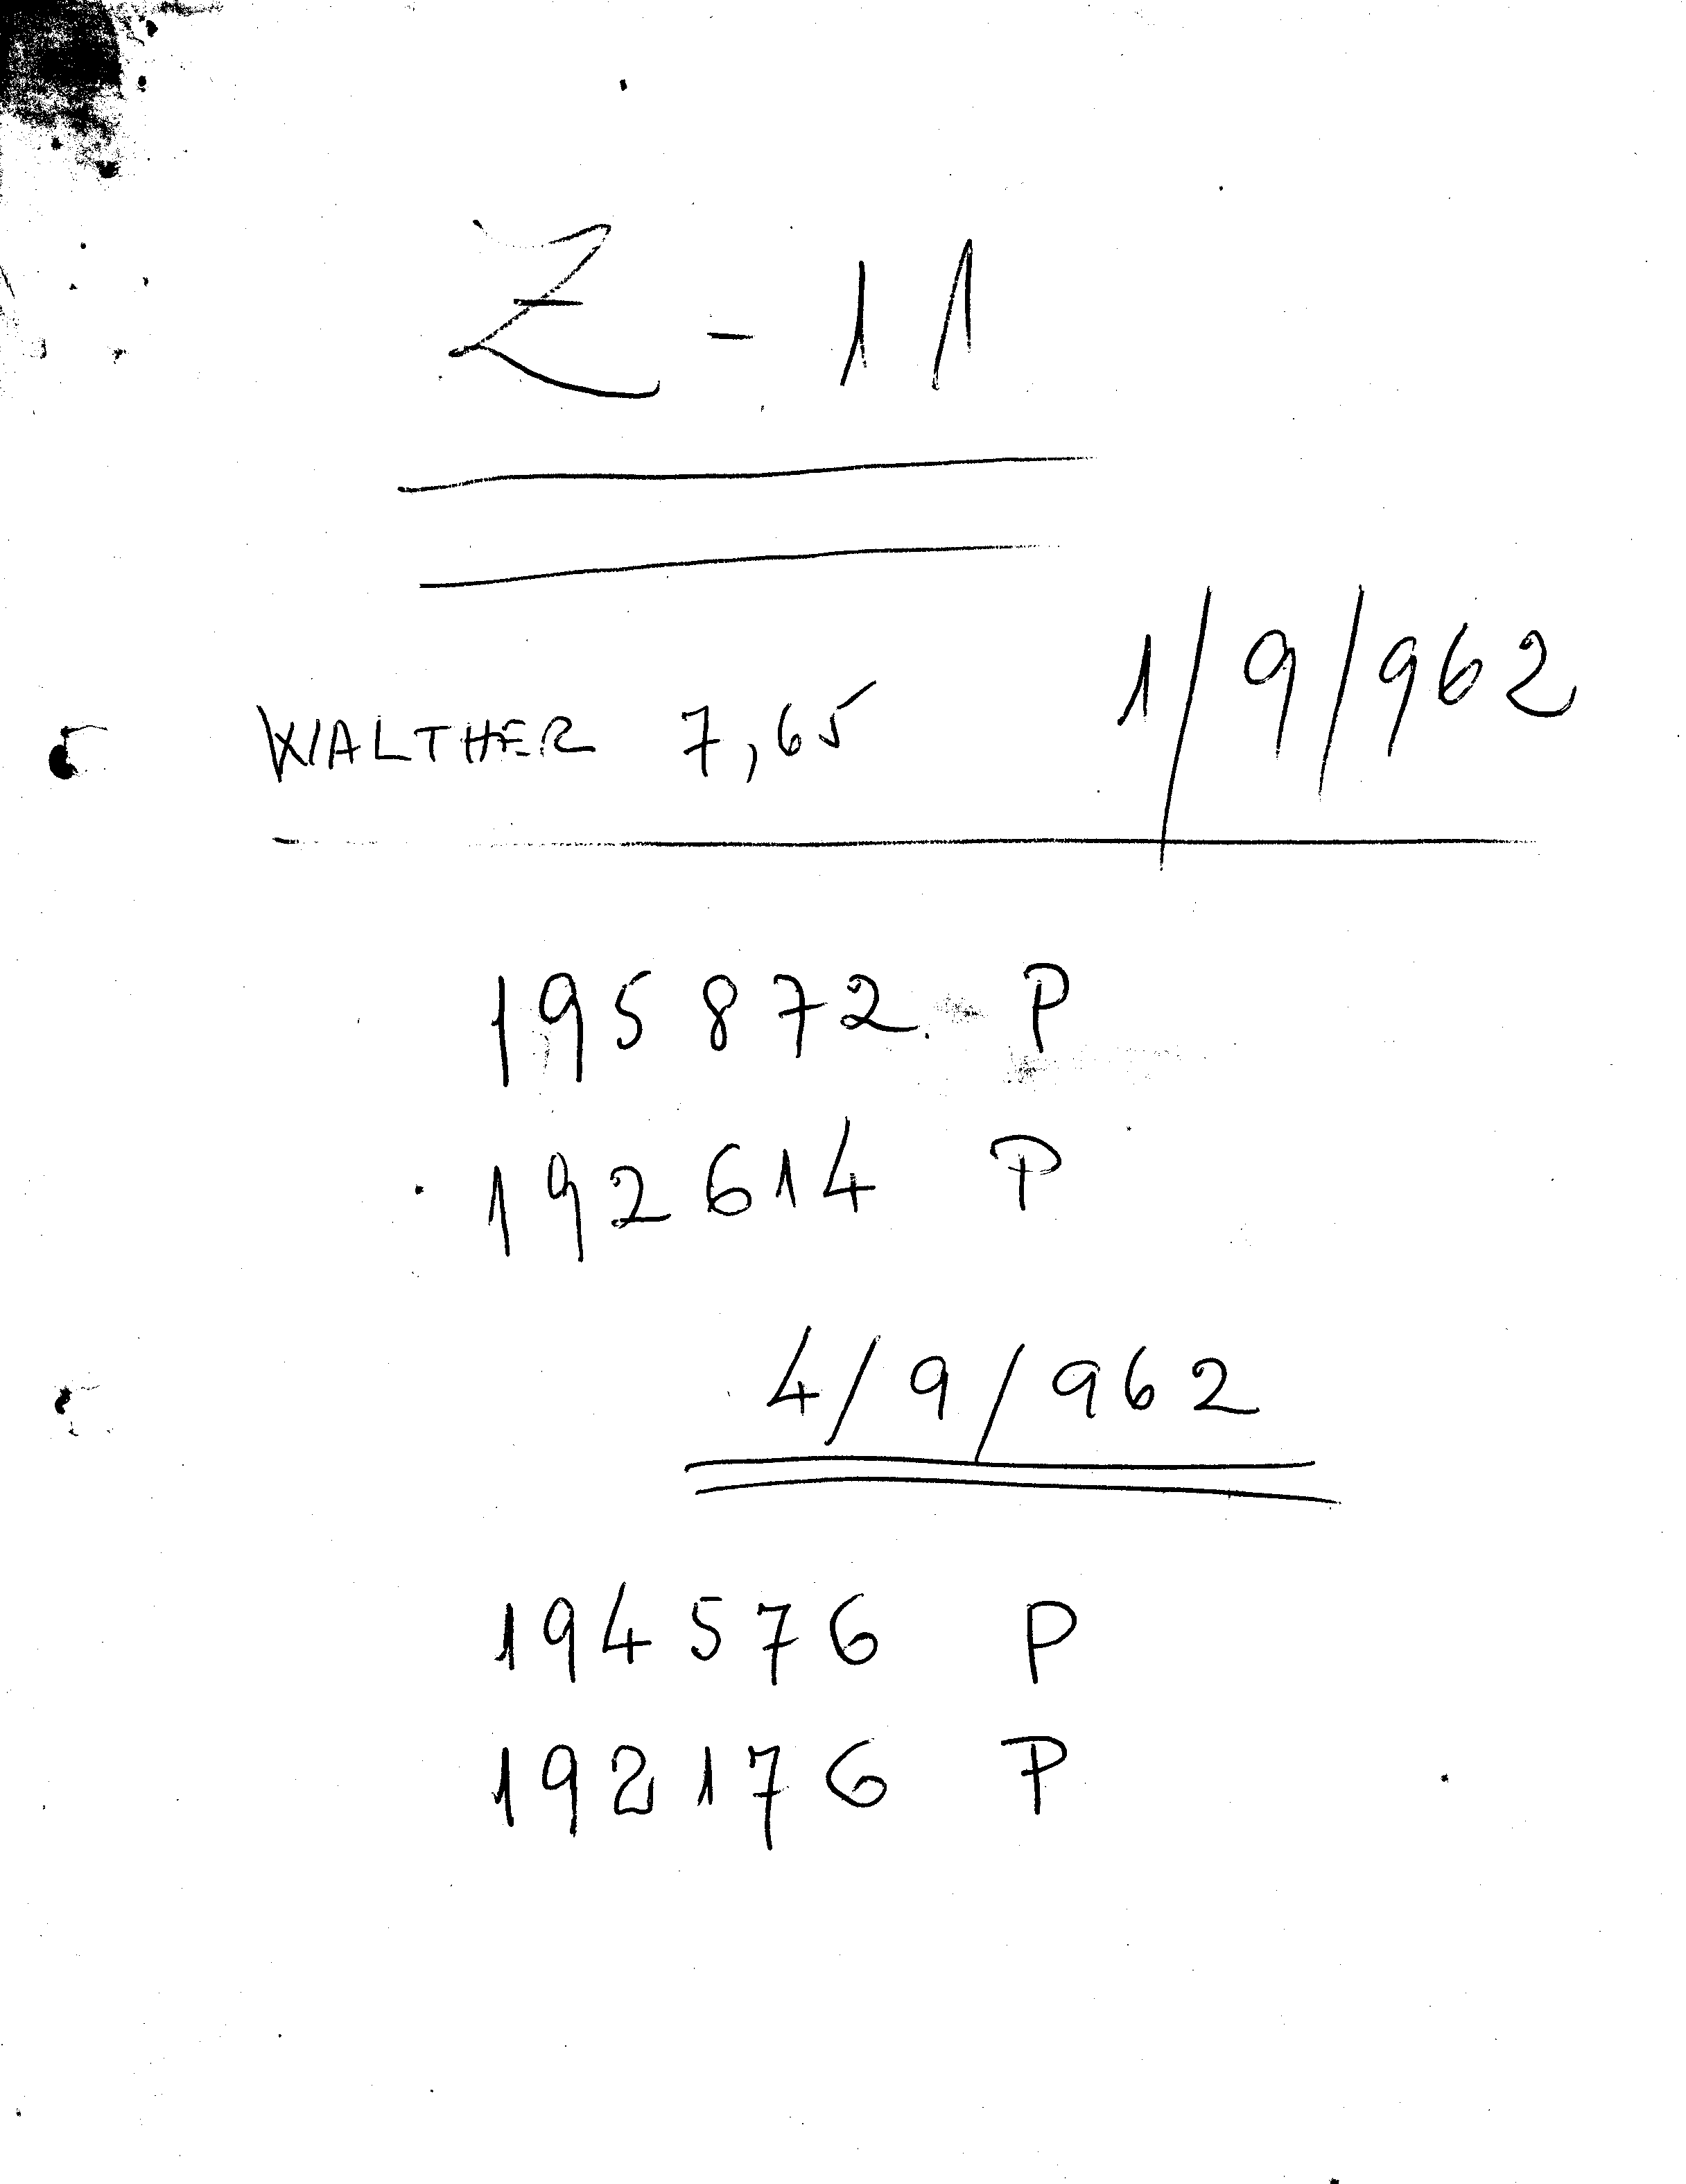 Z - 11
1/9/962
WALTHER 7,65
195872. P
192614 P
4/9/962
194576 P
192176 P